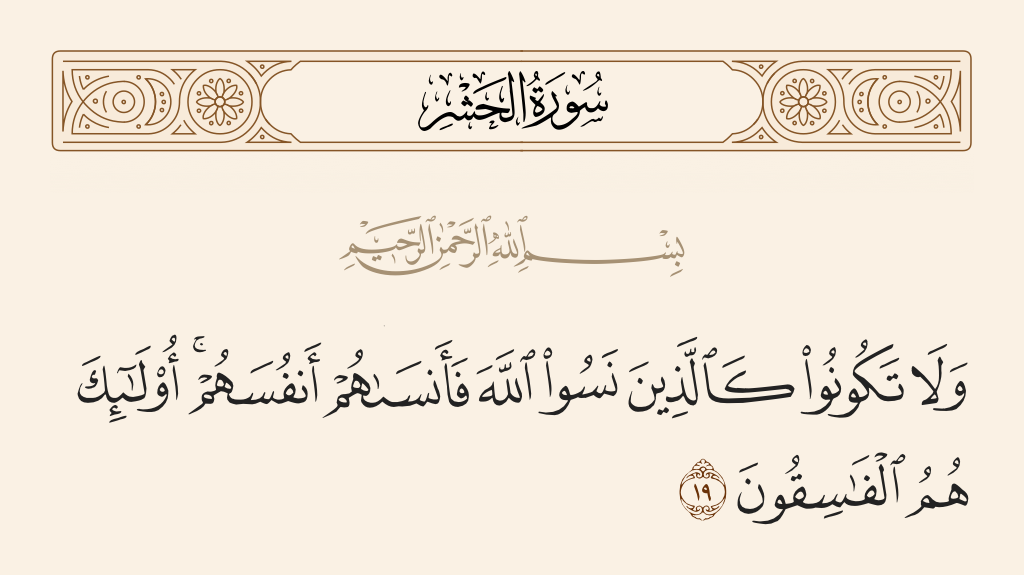 سُورَةُ الحَشْرِ
بِسْمِ ٱللَّهِ ٱلرَّحْمَٰنِ ٱلرَّحِيمِ
وَلَا تَكُونُوا۟ كَٱلَّذِينَ نَسُوا۟ ٱللَّهَ فَأَنسَىٰهُمْ أَنفُسَهُمْ ۚ أُو۟لَـٰٓئِكَ
هُمُ ٱلْفَـٰسِقُونَ ١٩